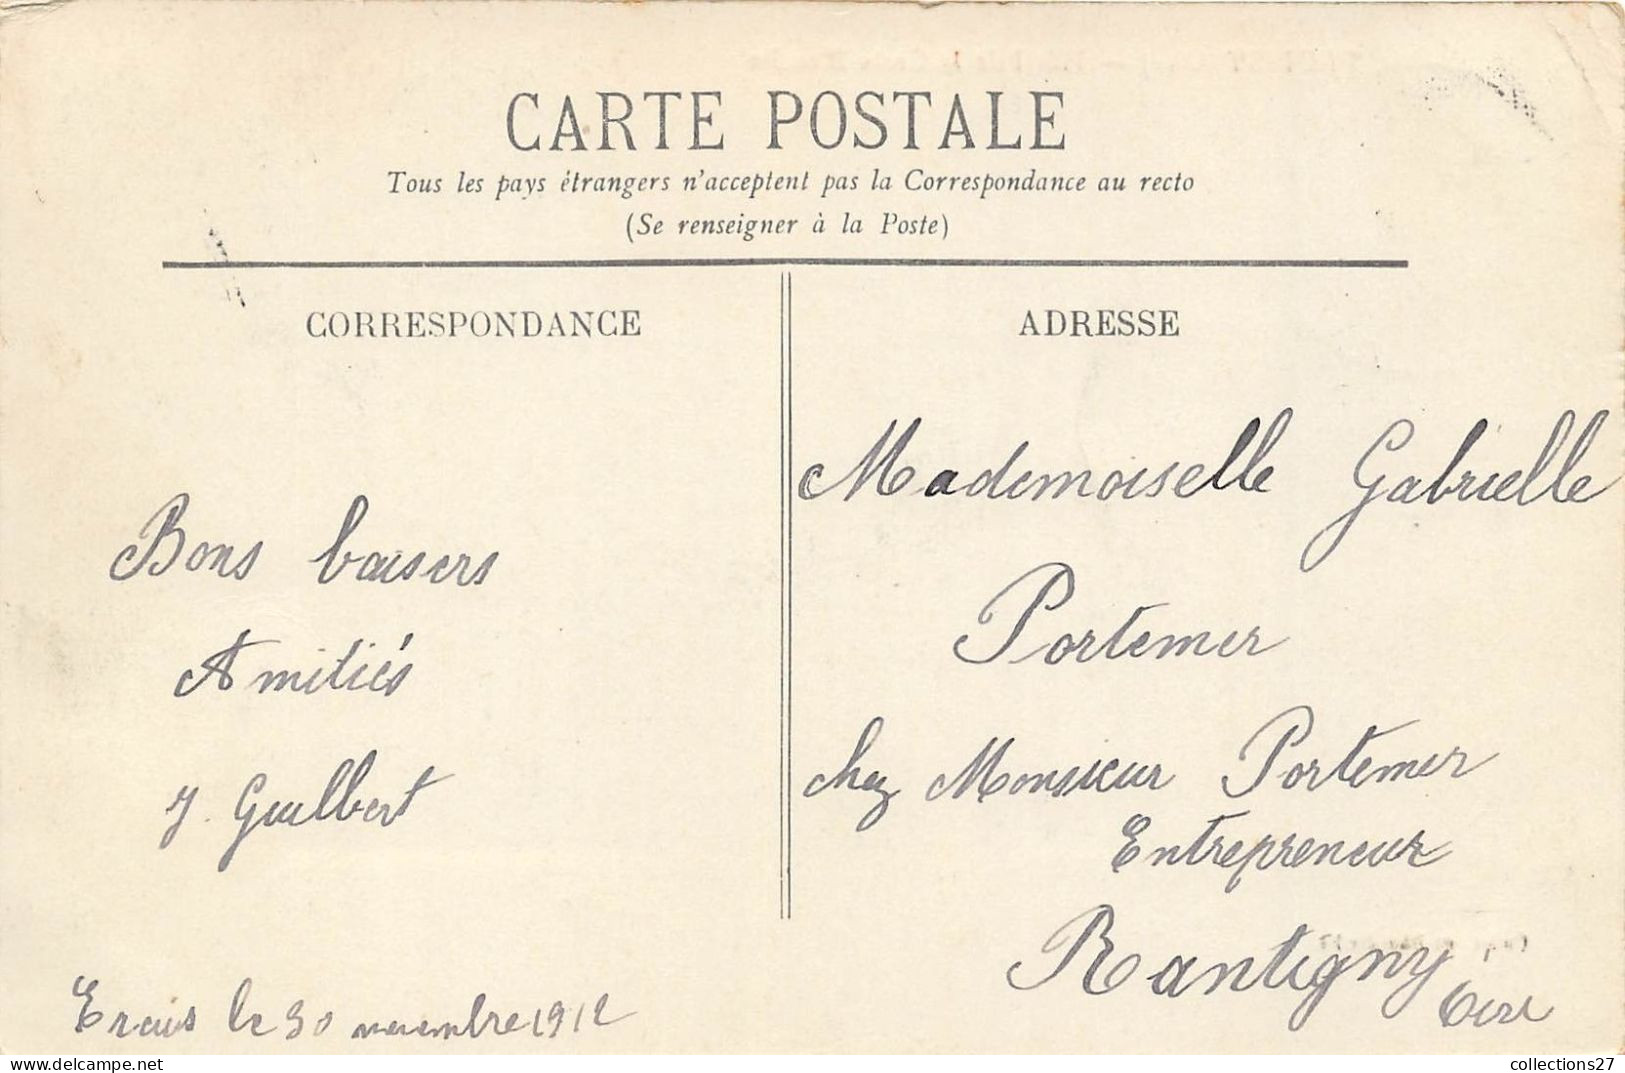 CARTE POSTALE
Tous les pays étrangers n'acceptent pas la Correspondance au recto
(Se renseigner à la Poste)
CORRESPONDANCE
ADRESSE
Bons baisers
Amitiés
J. Guilbert
le 30 novembre 1912
Mademoiselle Gabrielle
Portemer
chez Monsieur Portemer
Entrepreneur
Rantigny
Oise
collections27